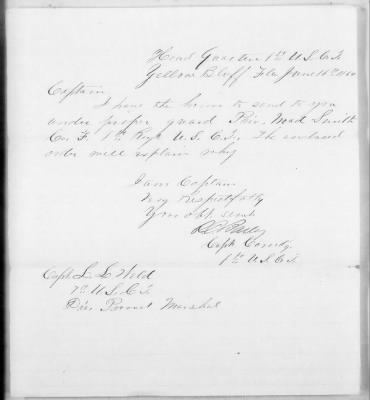 Head Quarters 1st U.S.C.T.
Yellow Bluff Fla June 16th 1864
Captain
I have the honor to send to you
under proper guard Priv. Mad Smith
Co. F. 1st Regt U.S.C.T. The enclosed
order will explain why
I am Captain
Very Respectfully
Your obt. servt.
Capt Comdg.
1st U.S.C.T.
Capt L. L. Weld
7th U.S.C.T.
Dis. Provost Marshal